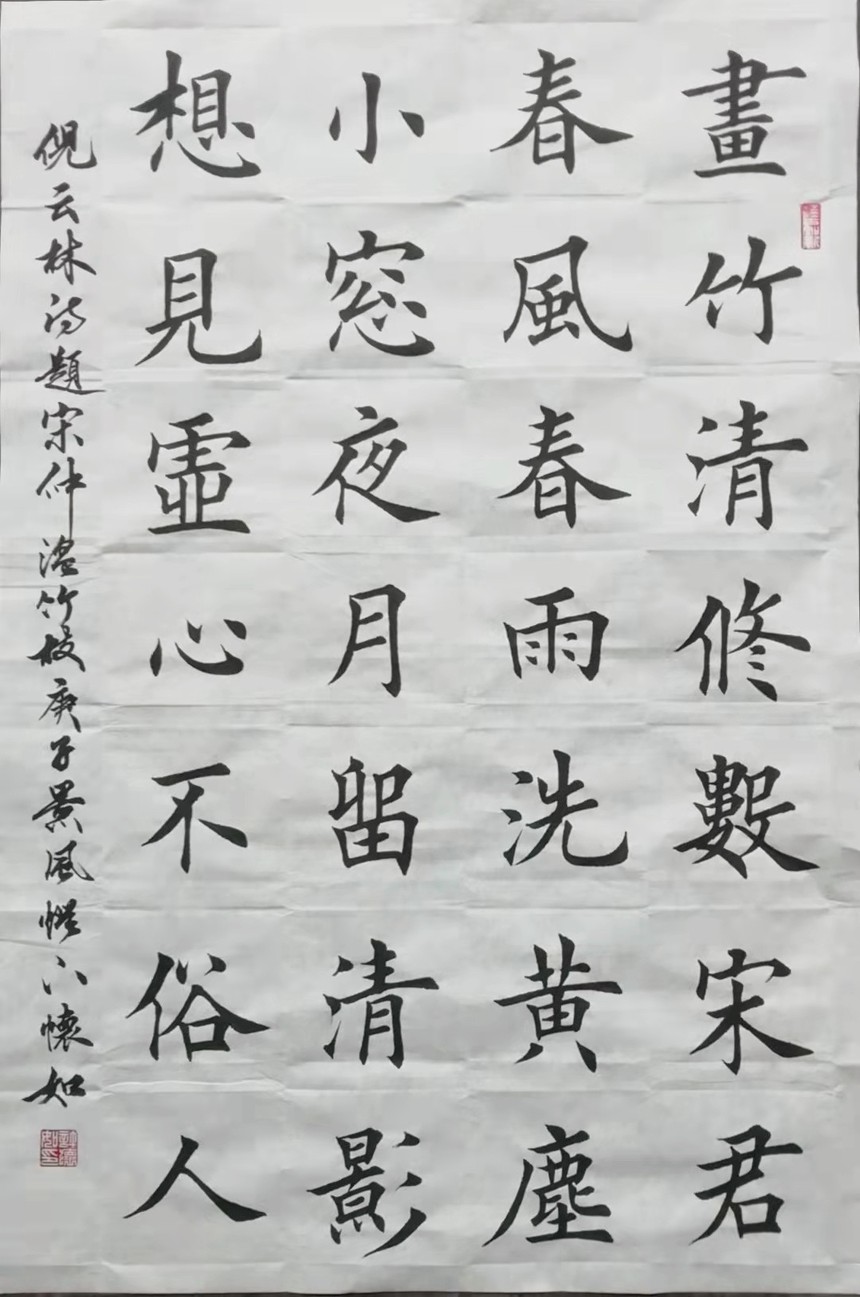 畫竹清修數宋君
春風春雨洗黄塵
小窓夜月留清影
想見虛心不俗人
倪云林詩題宋仲温竹枝庚子景風
懷如